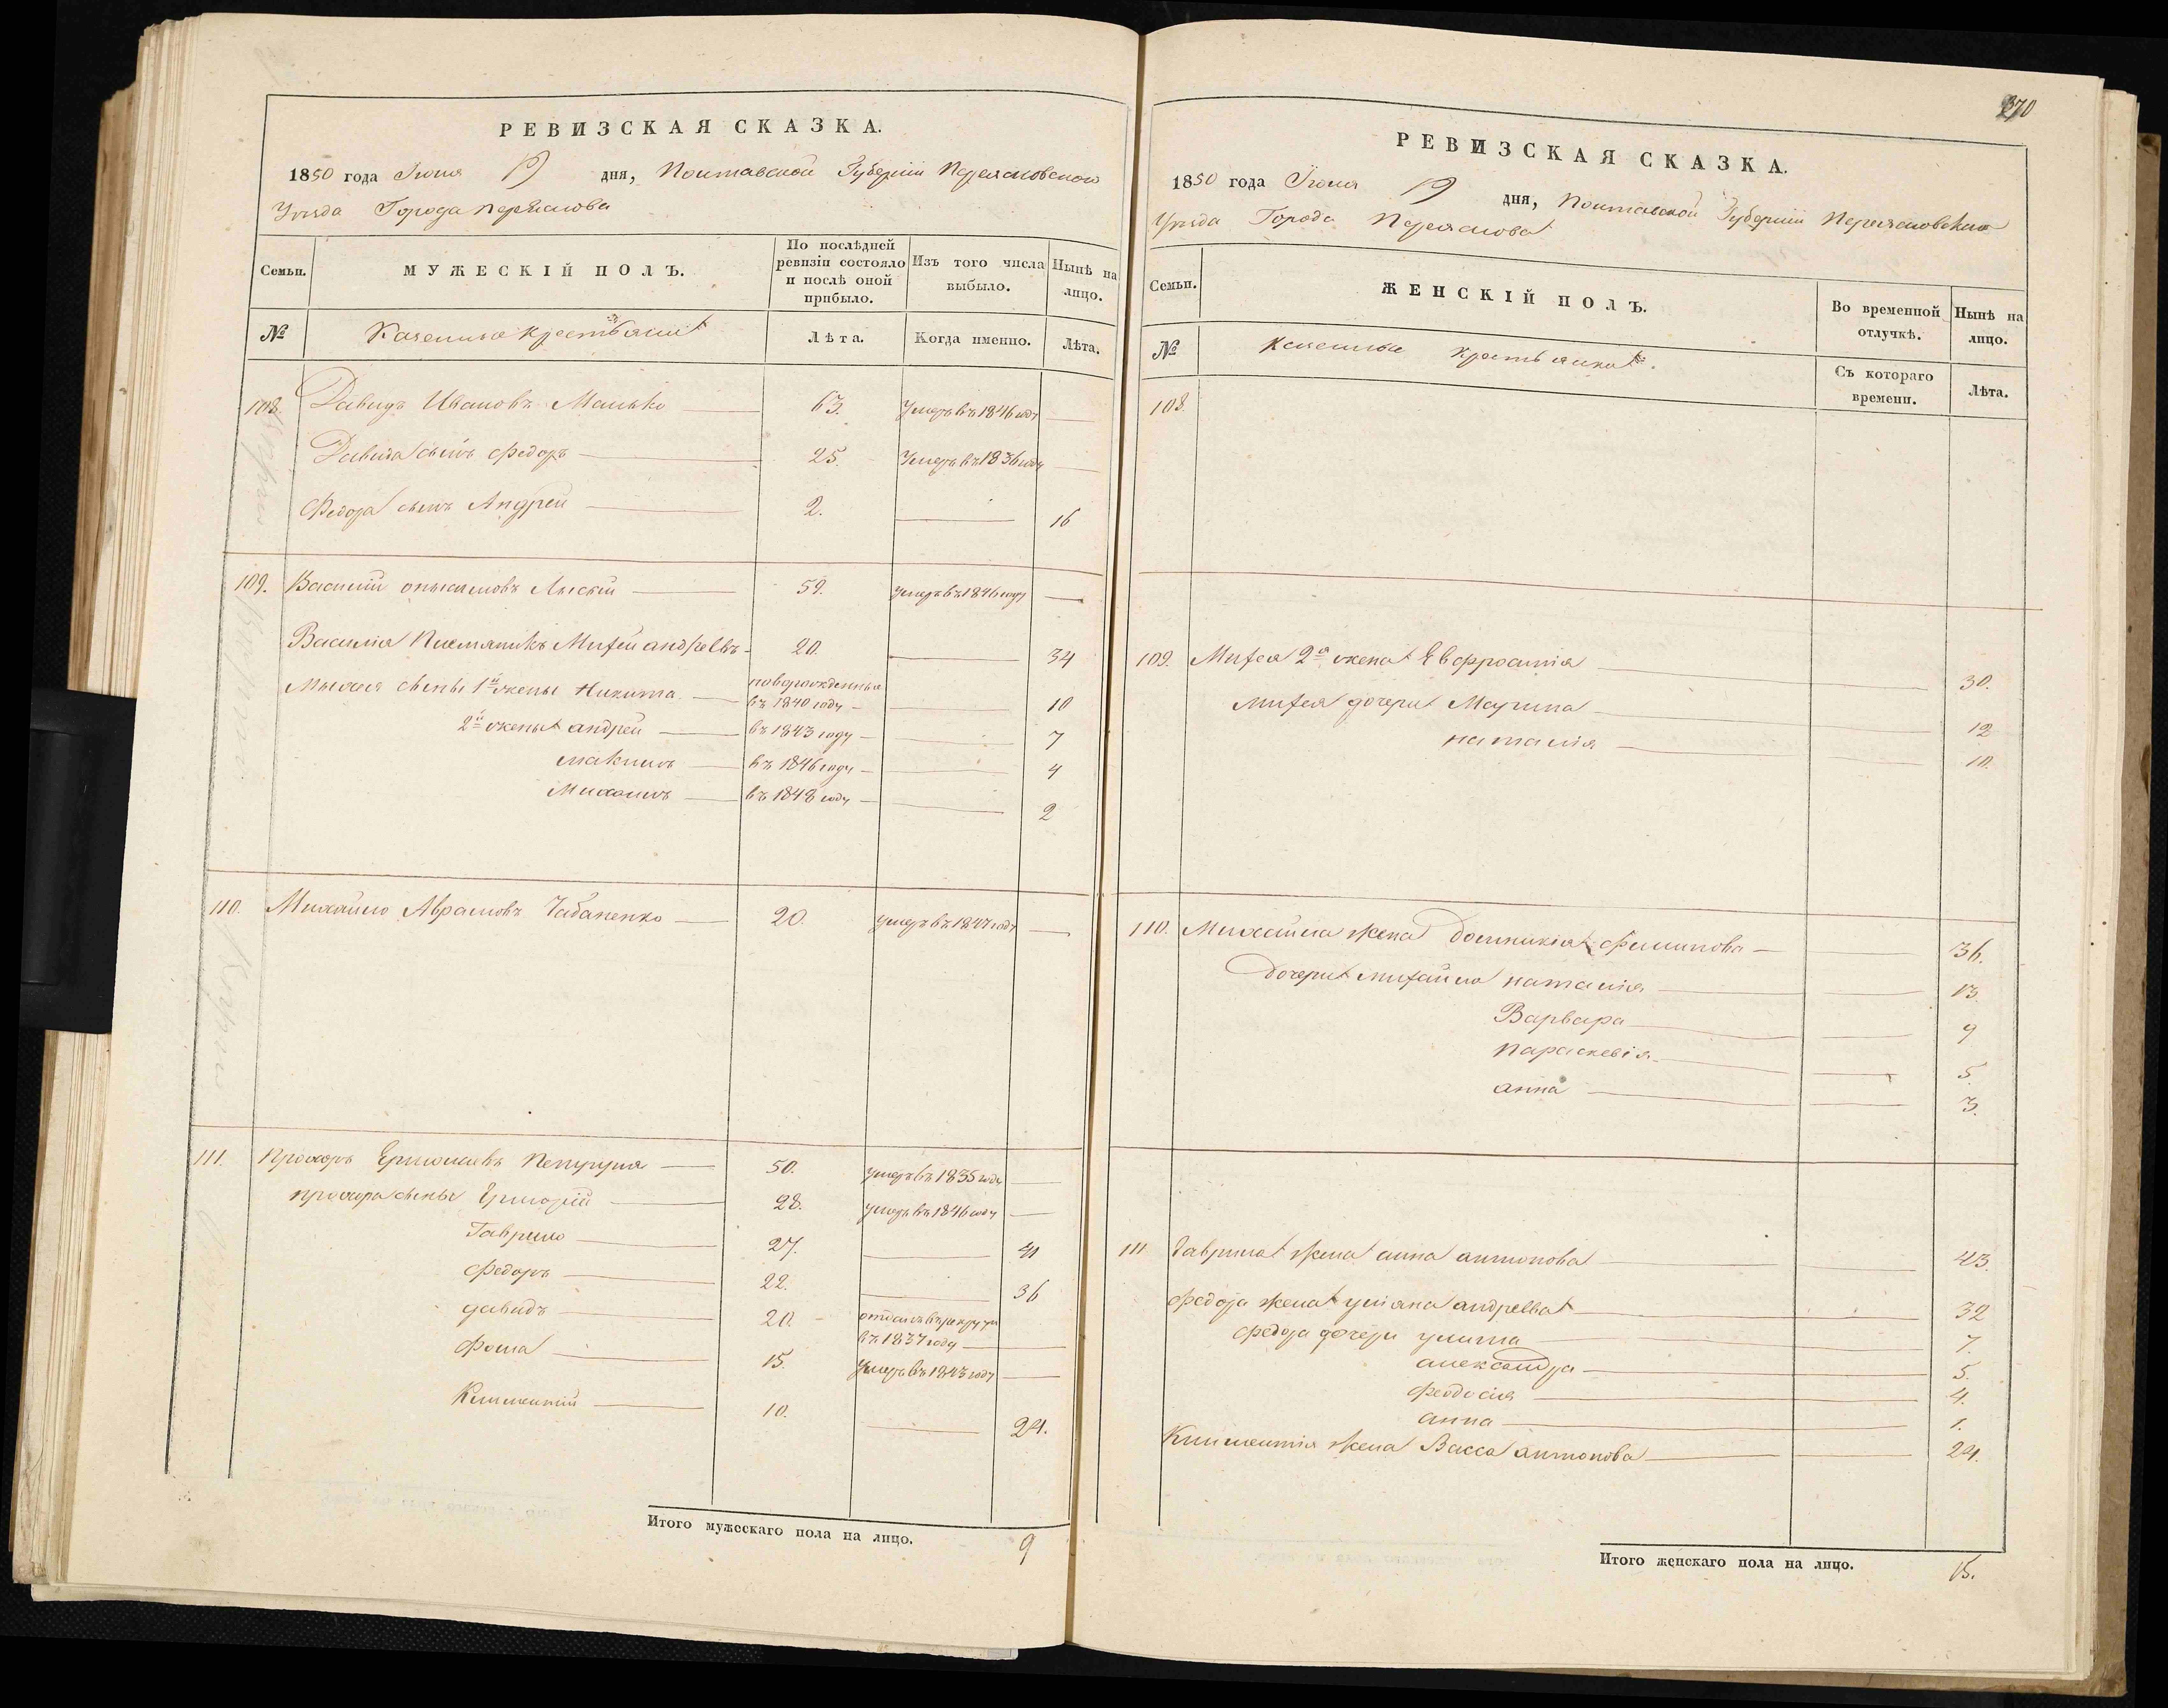 РЕВИЗСКАЯ СКАЗКА.
1850 года Іюня 19 дня, Полтавской Губерніи Переясловского
Уѣзда Города Переяслова
Семьи.
МУЖЕСКІЙ ПОЛЪ.
По послѣдней ревизіи состояло и послѣ оной прибыло.
Изъ того числа выбыло.
Нынѣ на лицо.
№
Лѣта.
Когда именно.
Лѣта.
108. Давидъ Ивановъ Манько 63. Умеръ въ 1846 году
Давида сынъ Федоръ 25. Умеръ въ 1836 году
Федора сынъ Андрей 2. 16
109. Василій Лысый 59. умеръ въ 1846 году
Василія Племяникъ Михей андреевъ 20. 34
сыны 1й жены Никита новорожденные въ 1840 году 10
2й жены андрей въ 1843 году 7
максимъ въ 1846 году 4
Михаилъ въ 1848 году 2
110. Михайло Аврамовъ Чабаненко 20. умеръ въ 1847 году
111. Прохоръ Ермолаевъ 50. умеръ въ 1835 году
прохора сыны 28. умеръ въ 1846 году
Гаврило 27. 41
Федоръ 22. 36
давидъ 20. отданъ въ рекруты въ 1837 году
Фома 15. Умеръ въ 1843 году
Климентій 10. 24.
Итого мужескаго пола на лицо. 9
270
РЕВИЗСКАЯ СКАЗКА.
1850 года Іюня 19 дня, Полтавской Губерніи Переясловского
Уѣзда Города Переяслова
Семьи.
ЖЕНСКІЙ ПОЛЪ.
Во временной отлучкѣ.
Нынѣ на лицо.
№
Съ котораго времени.
Лѣта.
108.
109. Михея 2я жена Евфросинія 30.
михея дочери Марина 12
наталія 10.
110. Михайла жена Домникія Филипова 36.
Дочери михайла наталія 13.
Варвара 9
параскевія 5.
анна 3.
111 Гаврила жена анна антонова 43.
Федора жена уліана андреева 32
Федора дочери улита 7.
александра 5.
Феодосія 4.
анна 1.
Климентія жена Васса антонова 24.
Итого женскаго пола на лицо. 15.